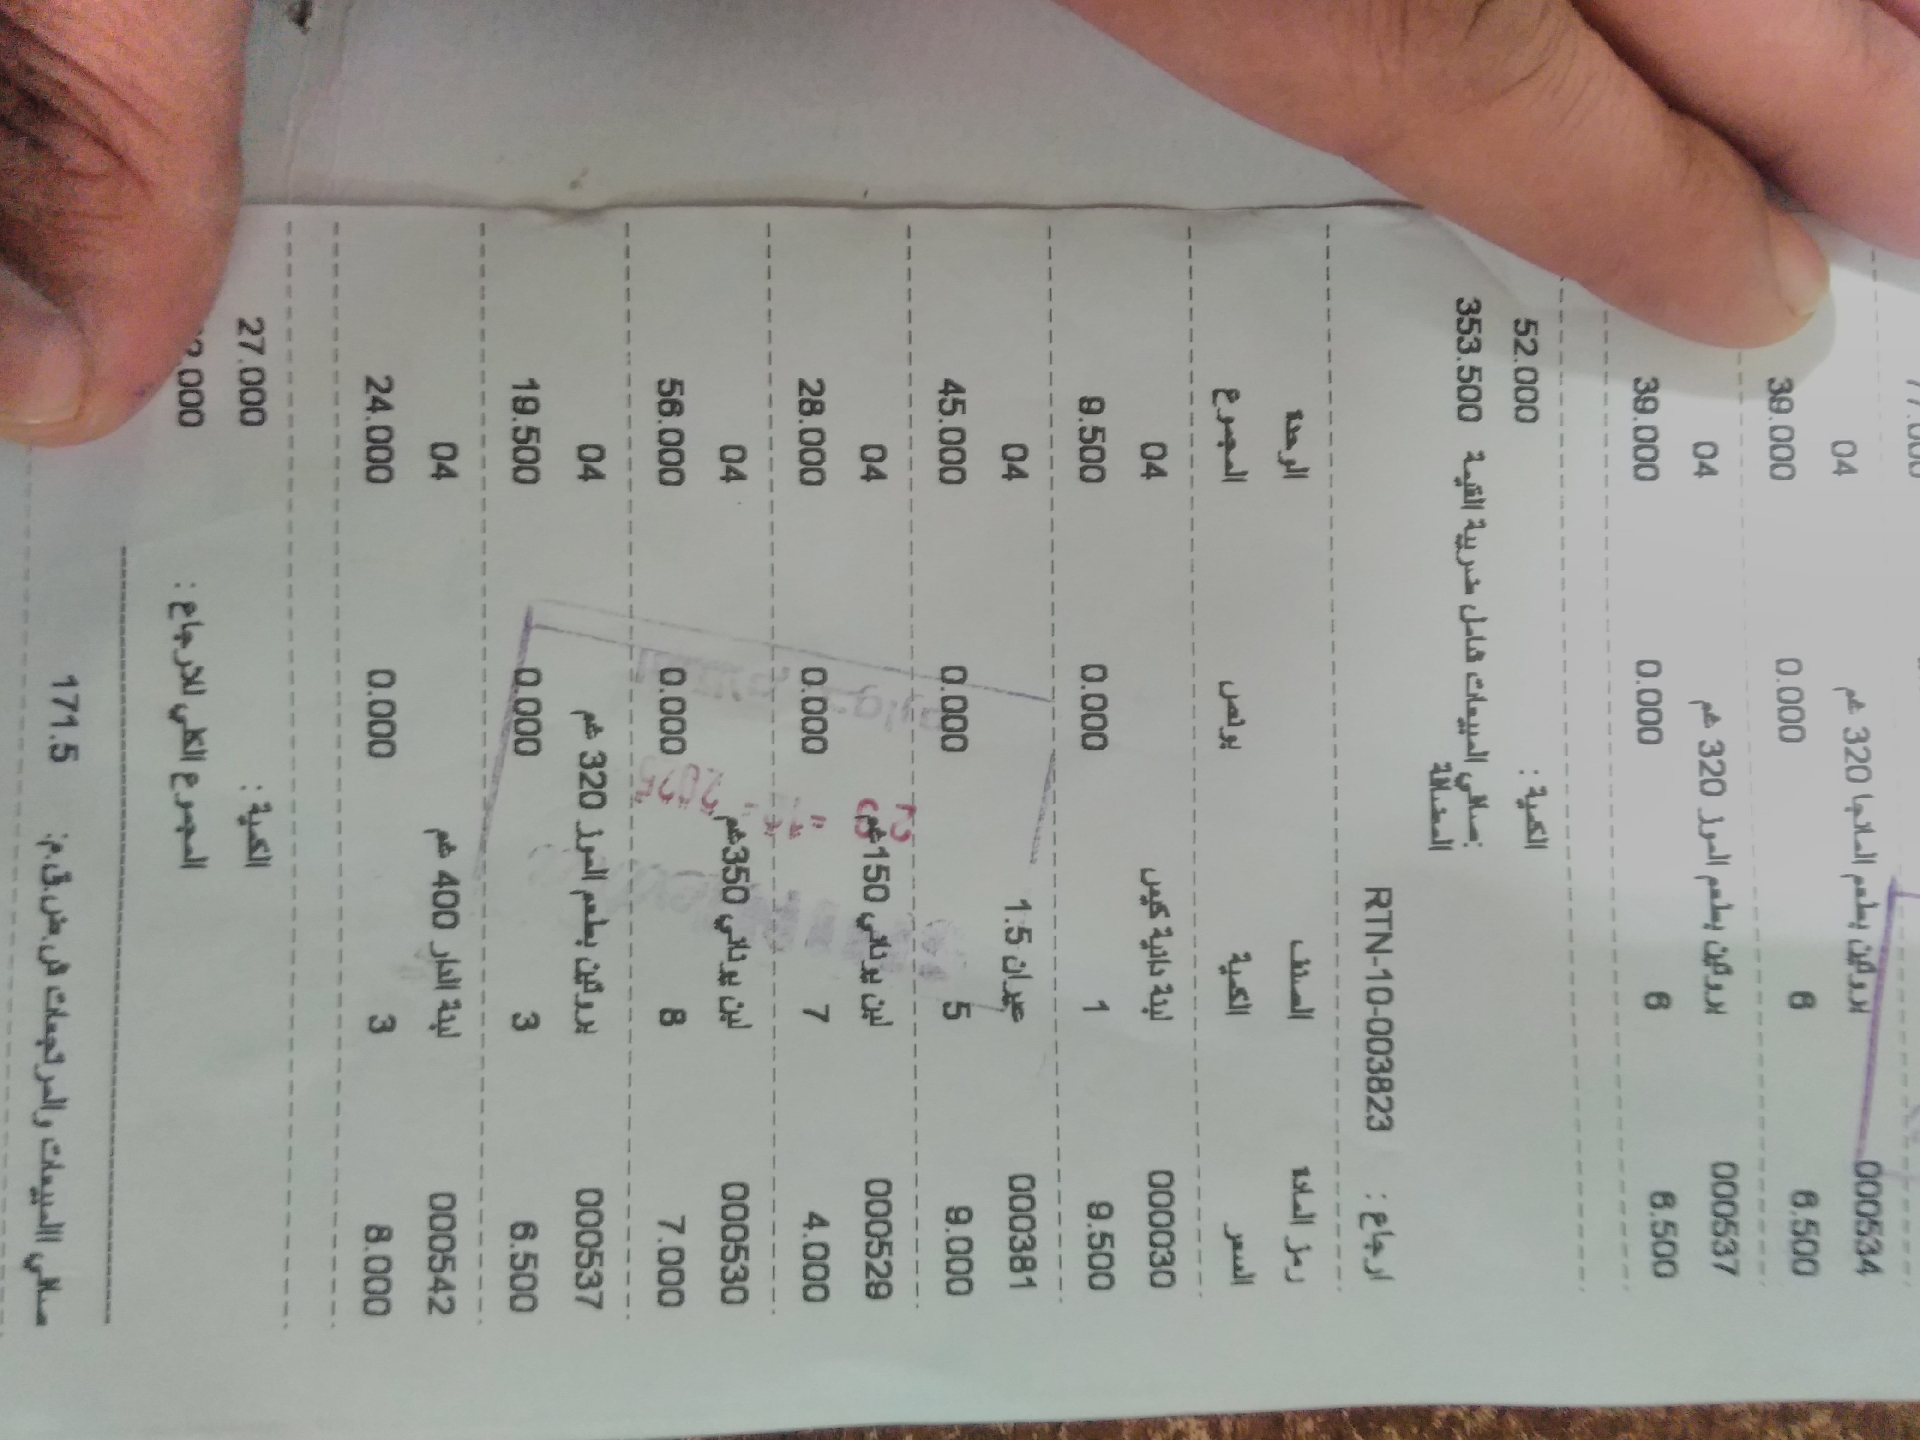 000534 بروتين بطعم المانجا 320 غم 04
6.500 6 0.000 39.000
000537 بروتين بطعم الموز 320 غم 04
6.500 6 0.000 39.000
الكمية : 52.000
صافي المبيعات شامل ضريبة القيمة المضافة: 353.500
ارجاع : RTN-10-003823
رمز المادة الصنف الوحدة
السعر الكمية بونص المجموع
000030 لبنة دانية كيس 04
9.500 1 0.000 9.500
000381 عيران 1.5 04
9.000 5 0.000 45.000
000528 لبن يوناني 150غم 04
4.000 7 0.000 28.000
000530 لبن يوناني 350غم 04
7.000 8 0.000 56.000
000537 بروتين بطعم الموز 320 غم 04
6.500 3 0.000 19.500
000542 لبنة الدار 400 غم 04
8.000 3 0.000 24.000
الكمية : 27.000
المجموع الكلي للارجاع :
صافي االمبيعات والمرتجعات ش.ض.ق.م: 171.5